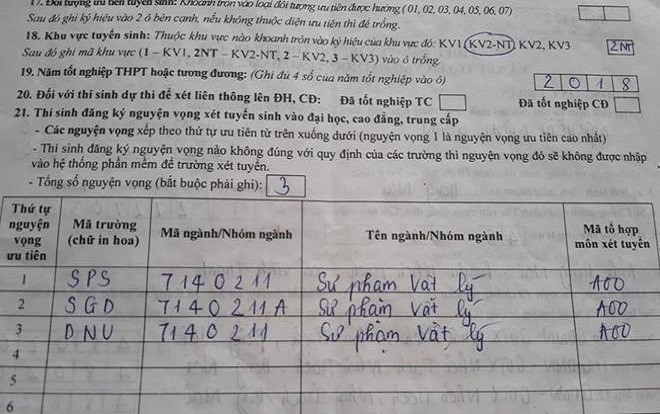 17. Đối tượng ưu tiên tuyển sinh: Khoanh tròn vào loại đối tượng ưu tiên được hưởng (01, 02, 03, 04, 05, 06, 07)
Sau đó ghi ký hiệu vào 2 ô bên cạnh, nếu không thuộc diện ưu tiên thì để trống.
18. Khu vực tuyển sinh: Thuộc khu vực nào khoanh tròn vào ký hiệu của khu vực đó: KV1, KV2-NT, KV2, KV3
Sau đó ghi mã khu vực (1 – KV1, 2NT – KV2-NT, 2 – KV2, 3 – KV3) vào ô trống. 2NT
19. Năm tốt nghiệp THPT hoặc tương đương: (Ghi đủ 4 số của năm tốt nghiệp vào ô) 2 0 1 8
20. Đối với thí sinh dự thi để xét liên thông lên ĐH, CĐ: Đã tốt nghiệp TC Đã tốt nghiệp CĐ
21. Thí sinh đăng ký nguyện vọng xét tuyển sinh vào đại học, cao đẳng, trung cấp
- Các nguyện vọng xếp theo thứ tự ưu tiên từ trên xuống dưới (nguyện vọng 1 là nguyện vọng ưu tiên cao nhất)
- Thí sinh đăng ký nguyện vọng nào không đúng với quy định của các trường thì nguyện vọng đó sẽ không được nhập
vào hệ thống phần mềm để trường xét tuyển.
- Tổng số nguyện vọng (bắt buộc phải ghi): 3
Thứ tự nguyện vọng ưu tiên Mã trường (chữ in hoa) Mã ngành/Nhóm ngành Tên ngành/Nhóm ngành Mã tổ hợp môn xét tuyển
1 SPS 7140211 Sư phạm Vật lý A00
2 SGD 7140211A Sư phạm Vật lý A00
3 DNU 7140211 Sư phạm Vật lý A00
4
5
6